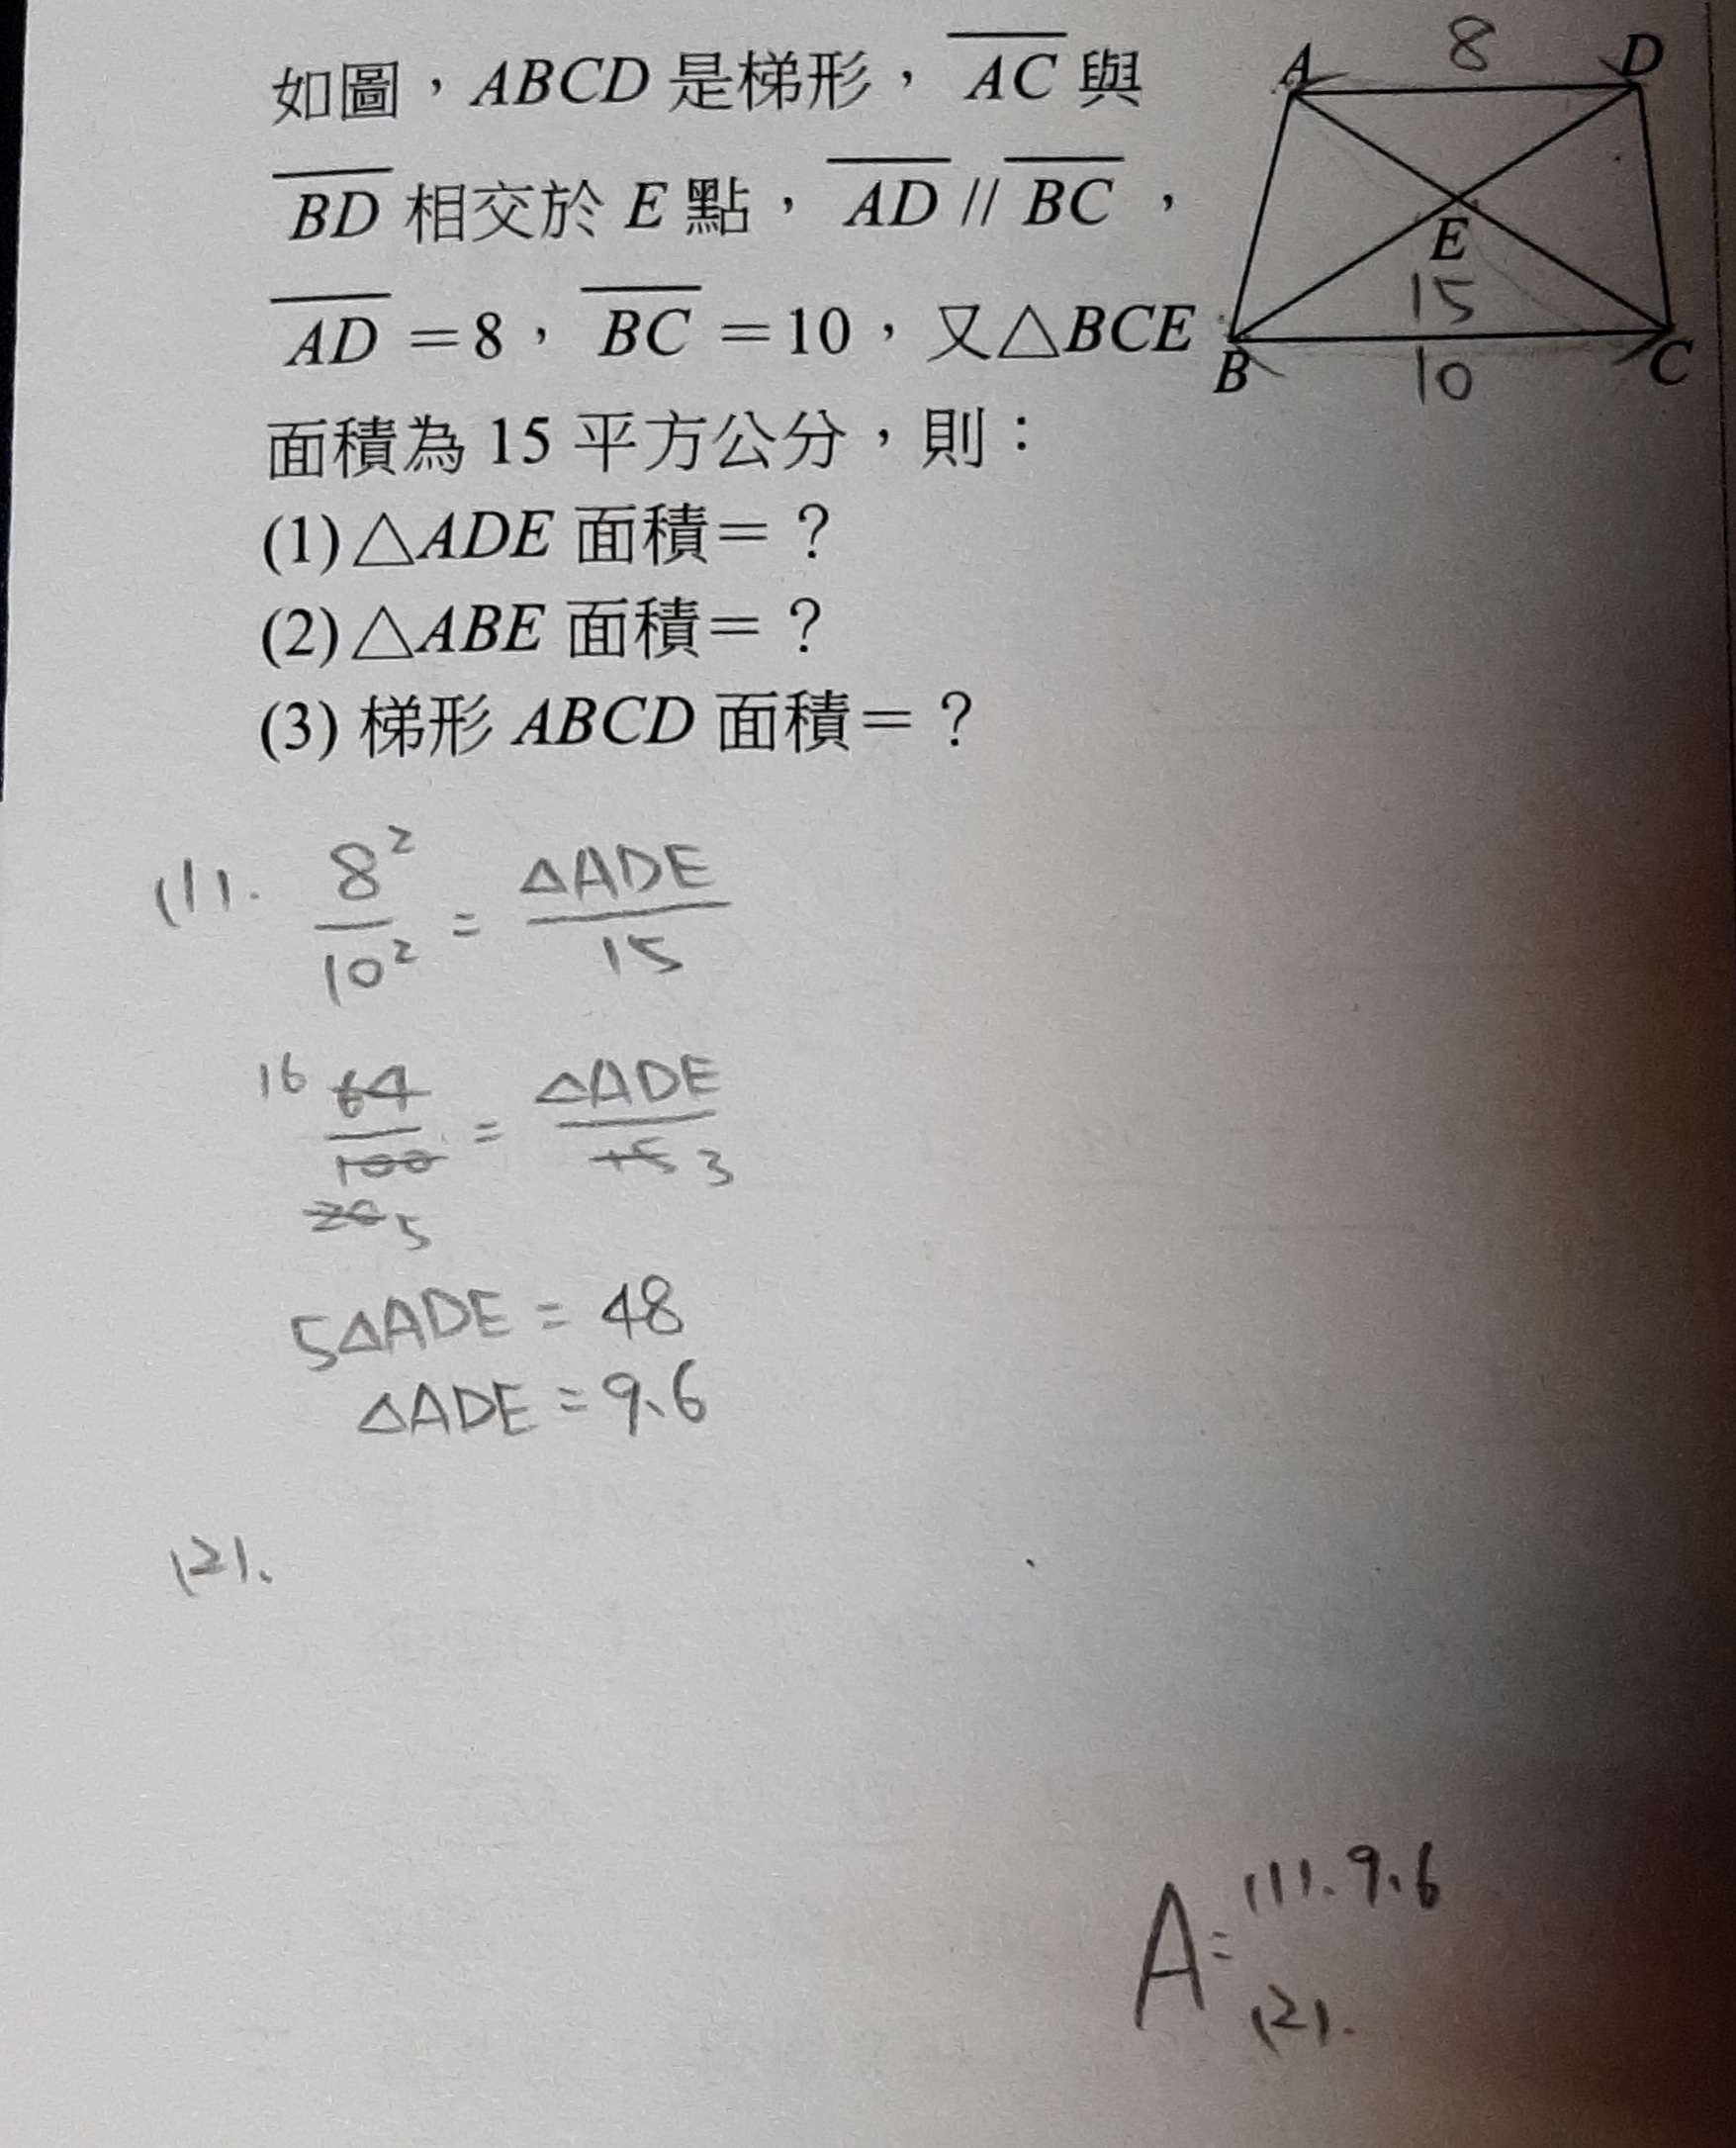 如圖，ABCD 是梯形， AC 與
BD 相交於 E 點， AD // BC ，
AD ＝8， BC ＝10，又△BCE
面積為 15 平方公分，則：
(1)△ADE 面積＝？
(2)△ABE 面積＝？
(3) 梯形 ABCD 面積＝？
A
8
D
E
15
B
10
C
(1). 8² / 10² = △ADE / 15
16 64 / 100 = △ADE / 15 3
20 5
5△ADE = 48
△ADE = 9.6
(2).
A= (1). 9.6
(2).